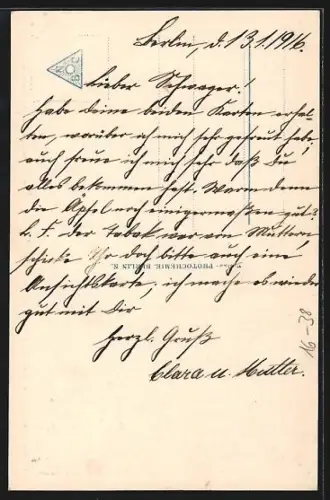 Berlin, d. 13.1.1916.
Lieber Schwager!
Habe deine beiden Karten erhal-
ten, worüber ich mich sehr gefreut habe,
auch freue ich mich sehr daß Du
alles bekommen hast. Waren denn
die Äpfel noch einigermaßen gut?
Der Tabak war von Muttern,
schicke Ihr doch bitte auch eine
Ansichtskarte, ich mache es wieder
gut mit Dir
Herzl. Gruß
Clara u. Mutter.
PHOTOCHEMIE, BERLIN N.
16-38